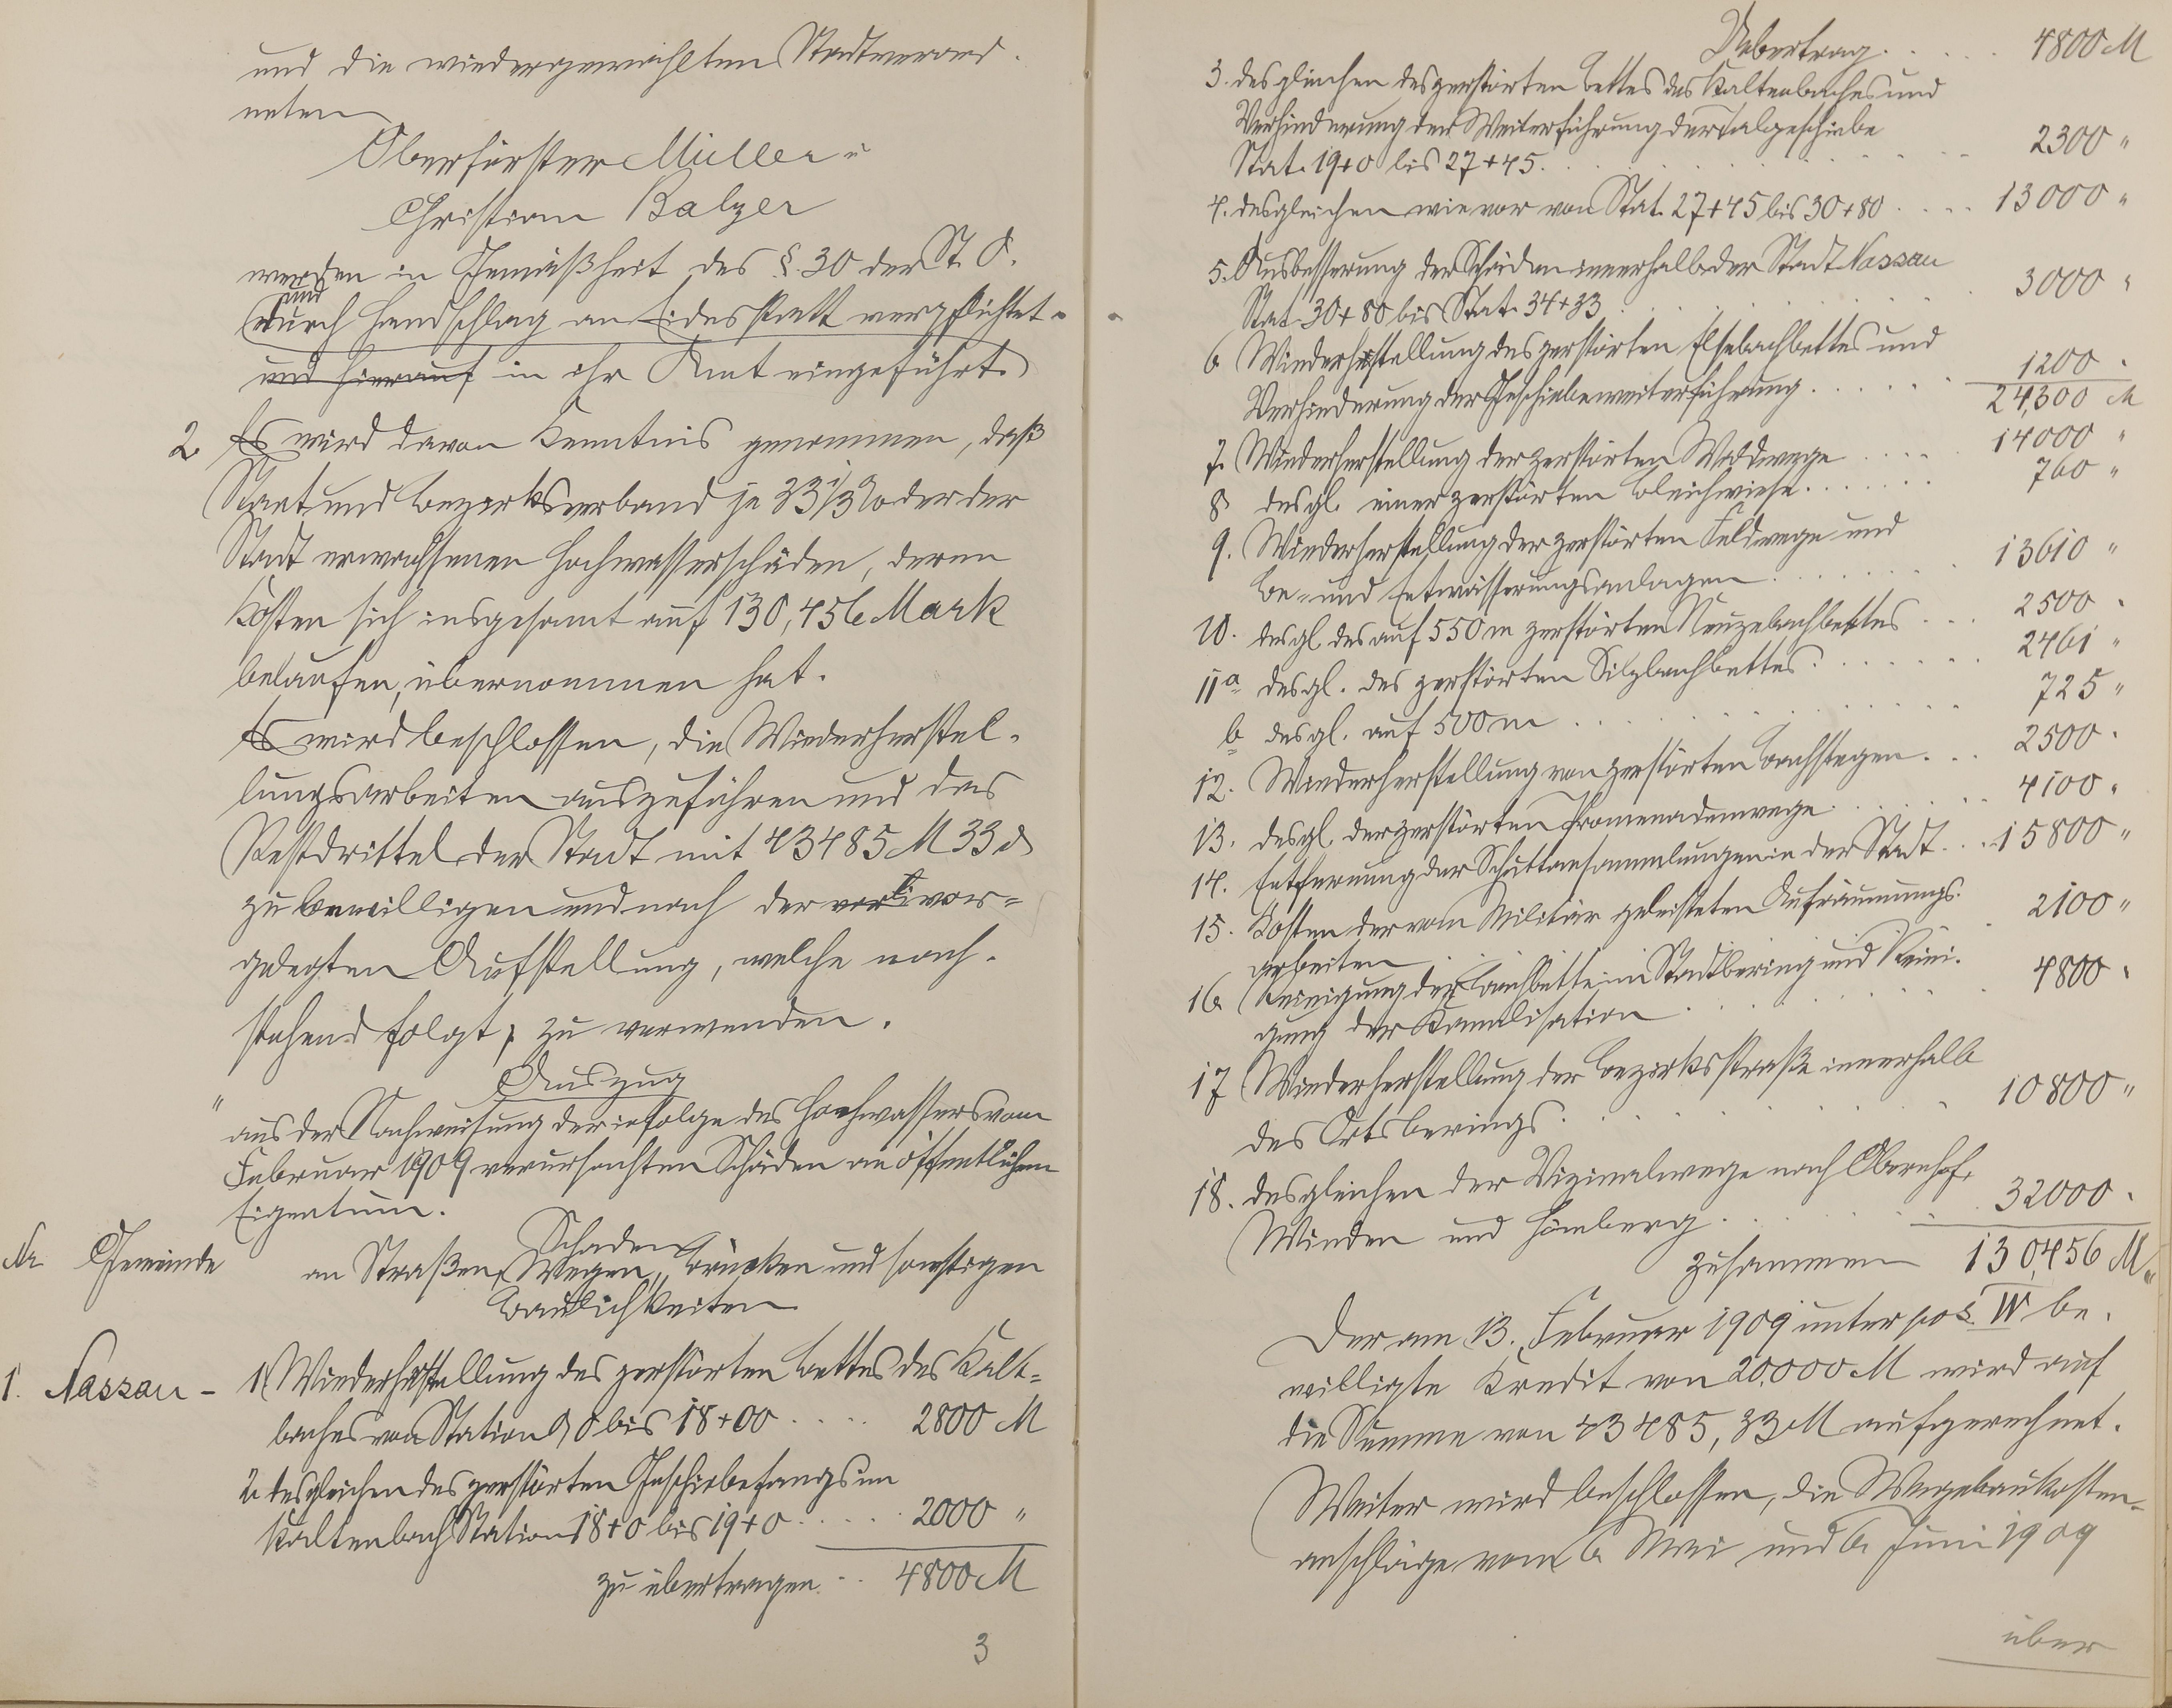 und die wiedergewählten Stadtverord-
neten
Oberförster Müller u
Christian Balzer
werden in Gemäßheit des §. 30 der St. O.
und
durch Handschlag an Eidesstatt verpflichtet.
und hierauf in ihr Amt eingeführt.
2. Es wird davon Kenntnis genommen, daß
Staat und Bezirksverband je 33 1/3 % der der
Stadt erwachsenen Hochwasserschäden, deren
Kosten sich insgesamt auf 130,456 Mark
belaufen, übernommen hat.
Es wird beschlossen, die Wiederherstel-
lungsarbeiten auszuführen und das
Restdrittel der Stadt mit 43485 M 33 d
zu bewilligen und nach der vor-
gelegten Aufstellung, welche nach-
stehend folgt, zu verwenden.
Auszug
"
aus der Nachweisung der infolge des Hochwassers vom
Februar 1909 verursachten Schäden an öffentlichem
Eigentum.
Nr. Gemeinde
Schaden
an Straßen, Wegen, Brücken und sonstigen
Baulichkeiten
1. Nassau - 1. Wiederherstellung des zerstörten Bettes des Kalt-
baches von Station 0,0 bis 18+00 .... 2800 M
2. desgleichen des zerstörten Geschiebefangs im
Kaltenbach Station 18+0 bis 19+0 ..... 2000 "
zu übertragen .. 4800 M
3
Uebertrag. .... 4800 M
3. desgleichen des zerstörten Bettes des Kaltenbaches und
Verhinderung der Weiterführung der Talgeschiebe
Stat. 19+0 bis 27+45. 2300 "
4. desgleichen wie vor von Stat. 27+45 bis 30+80 .... 13000 "
5. Ausbesserung der Schäden innerhalb der Stadt Nassau
Stat. 30+80 bis Stat. 34+33 3000 "
6 Wiederherstellung des zerstörten Elsebachbettes und
Verhinderung der Geschiebeweiterführung ...... 1200 "
24,300 M
7. Wiederherstellung der zerstörten Waldwege .... 14000 "
8 desgl. einer zerstörten Bleichwiese ....... 760 "
9. Wiederherstellung der zerstörten Feldwege und
Be- und Entwässerungsanlagen ....... 13610 "
10. desgl. des auf 550 m zerstörten Neuzebachbettes ... 2500 "
11a desgl. des zerstörten Silzbachbettes ....... 2461 "
b desgl. auf 500 m ....... 725 "
12. Wiederherstellung von zerstörten Bachstegen ... 2500 "
13. desgl. der zerstörten Promenadenwege ..... 4100 "
14. Entfernung der Schuttansammlungen in der Stadt ... 15800 "
15. Kosten der vom Militär geleisteten Aufräumungs-
arbeiten 2100 "
16 Reinigung der Bachbette im Stadtbering und Reini-
gung der Kanalisation 4800 "
17 Wiederherstellung der Bezirksstraße innerhalb
des Ortsberings 10800 "
18. desgleichen der Vizinalwege nach Obernhof,
Winden und Hömberg 32000 "
zusammen 130,456 M
Der am 13. Februar 1909 unter pos. IV be-
willigte Kredit von 20.000 M wird auf
die Summe von 43485,33 M aufgerechnet.
Weiter wird beschlossen, die Wegebaukosten-
anschläge vom 6. Mai und 6. Juni 1909
über